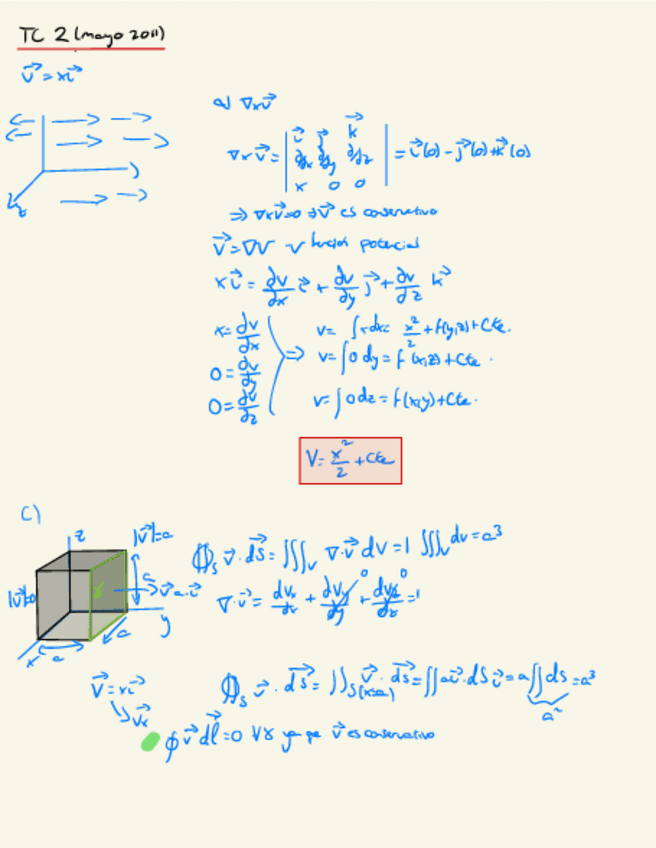 TC 2 (mayo 2011)
v⃗ = x i⃗
z
a) ∇x v⃗
∇x v⃗ = | i⃗ j⃗ k⃗ | ∂/∂x ∂/∂y ∂/∂z | x 0 0 | = i⃗(0) - j⃗(0) + k⃗(0)
⇒ ∇x v⃗ = 0 ⇒ v⃗ es conservativo
v⃗ = ∇V V función potencial
x i⃗ = ∂V/∂x i⃗ + ∂V/∂y j⃗ + ∂V/∂z k⃗
x = ∂V/∂x
0 = ∂V/∂y
0 = ∂V/∂z
⇒
V = ∫ x dx = x²/2 + f(y,z) + Cte.
V = ∫ 0 dy = f(x,z) + Cte.
V = ∫ 0 dz = f(x,y) + Cte.
V = x²/2 + Cte
C)
z
|v⃗| = a
|v⃗| = 0
γ
a
v⃗ = a · i⃗
y
x
a
a
∯_S v⃗ · dS⃗ = ∭_V ∇ · v⃗ dV = 1 ∭_V dV = a³
∇ · v⃗ = ∂Vx/∂x + ∂Vy/∂y 0 + ∂Vz/∂z 0 = 1
v⃗ = x i⃗
↘ Vx
∯_S v⃗ · dS⃗ = ∬_S(x=a) v⃗ · dS⃗ = ∬ a i⃗ · dS i⃗ = a ∬ dS = a³
a²
∮ v⃗ dl⃗ = 0 ∀γ ya que v⃗ es conservativo